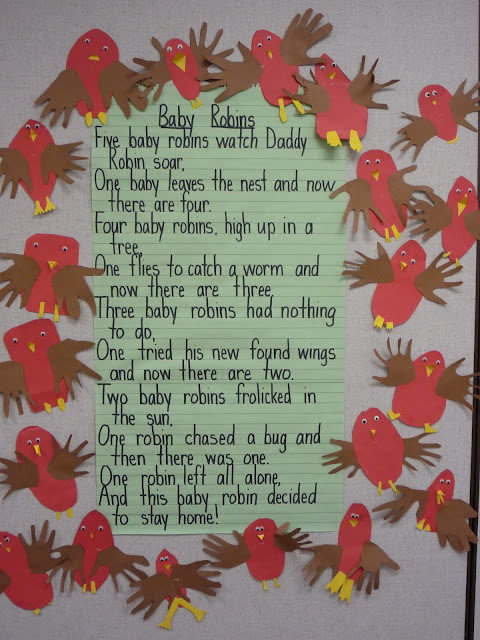 Baby Robins
Five baby robins watch Daddy
Robin soar,
One baby leaves the nest and now
there are four.
Four baby robins, high up in a
tree,
One flies to catch a worm and
now there are three.
Three baby robins had nothing
to do,
One tried his new found wings
and now there are two.
Two baby robins frolicked in
the sun,
One robin chased a bug and
then there was one.
One robin left all alone,
And this baby robin decided
to stay home!